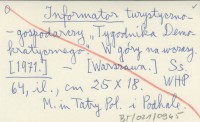 Informator turystyczno-
-gospodarczy „Tygodnika Demo-
kratycznego". W góry na wczasy
[1971.] - [Warszawa.] Ss.
64, il., cm 25 X 18. WHP
M. in Tatry Pol. i Podhale.
Br/021/0945